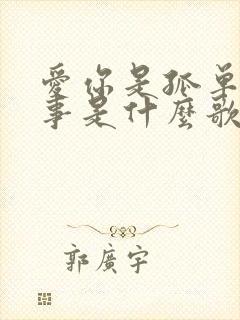 愛你是孤單
事是什麼歌
郭廣宇